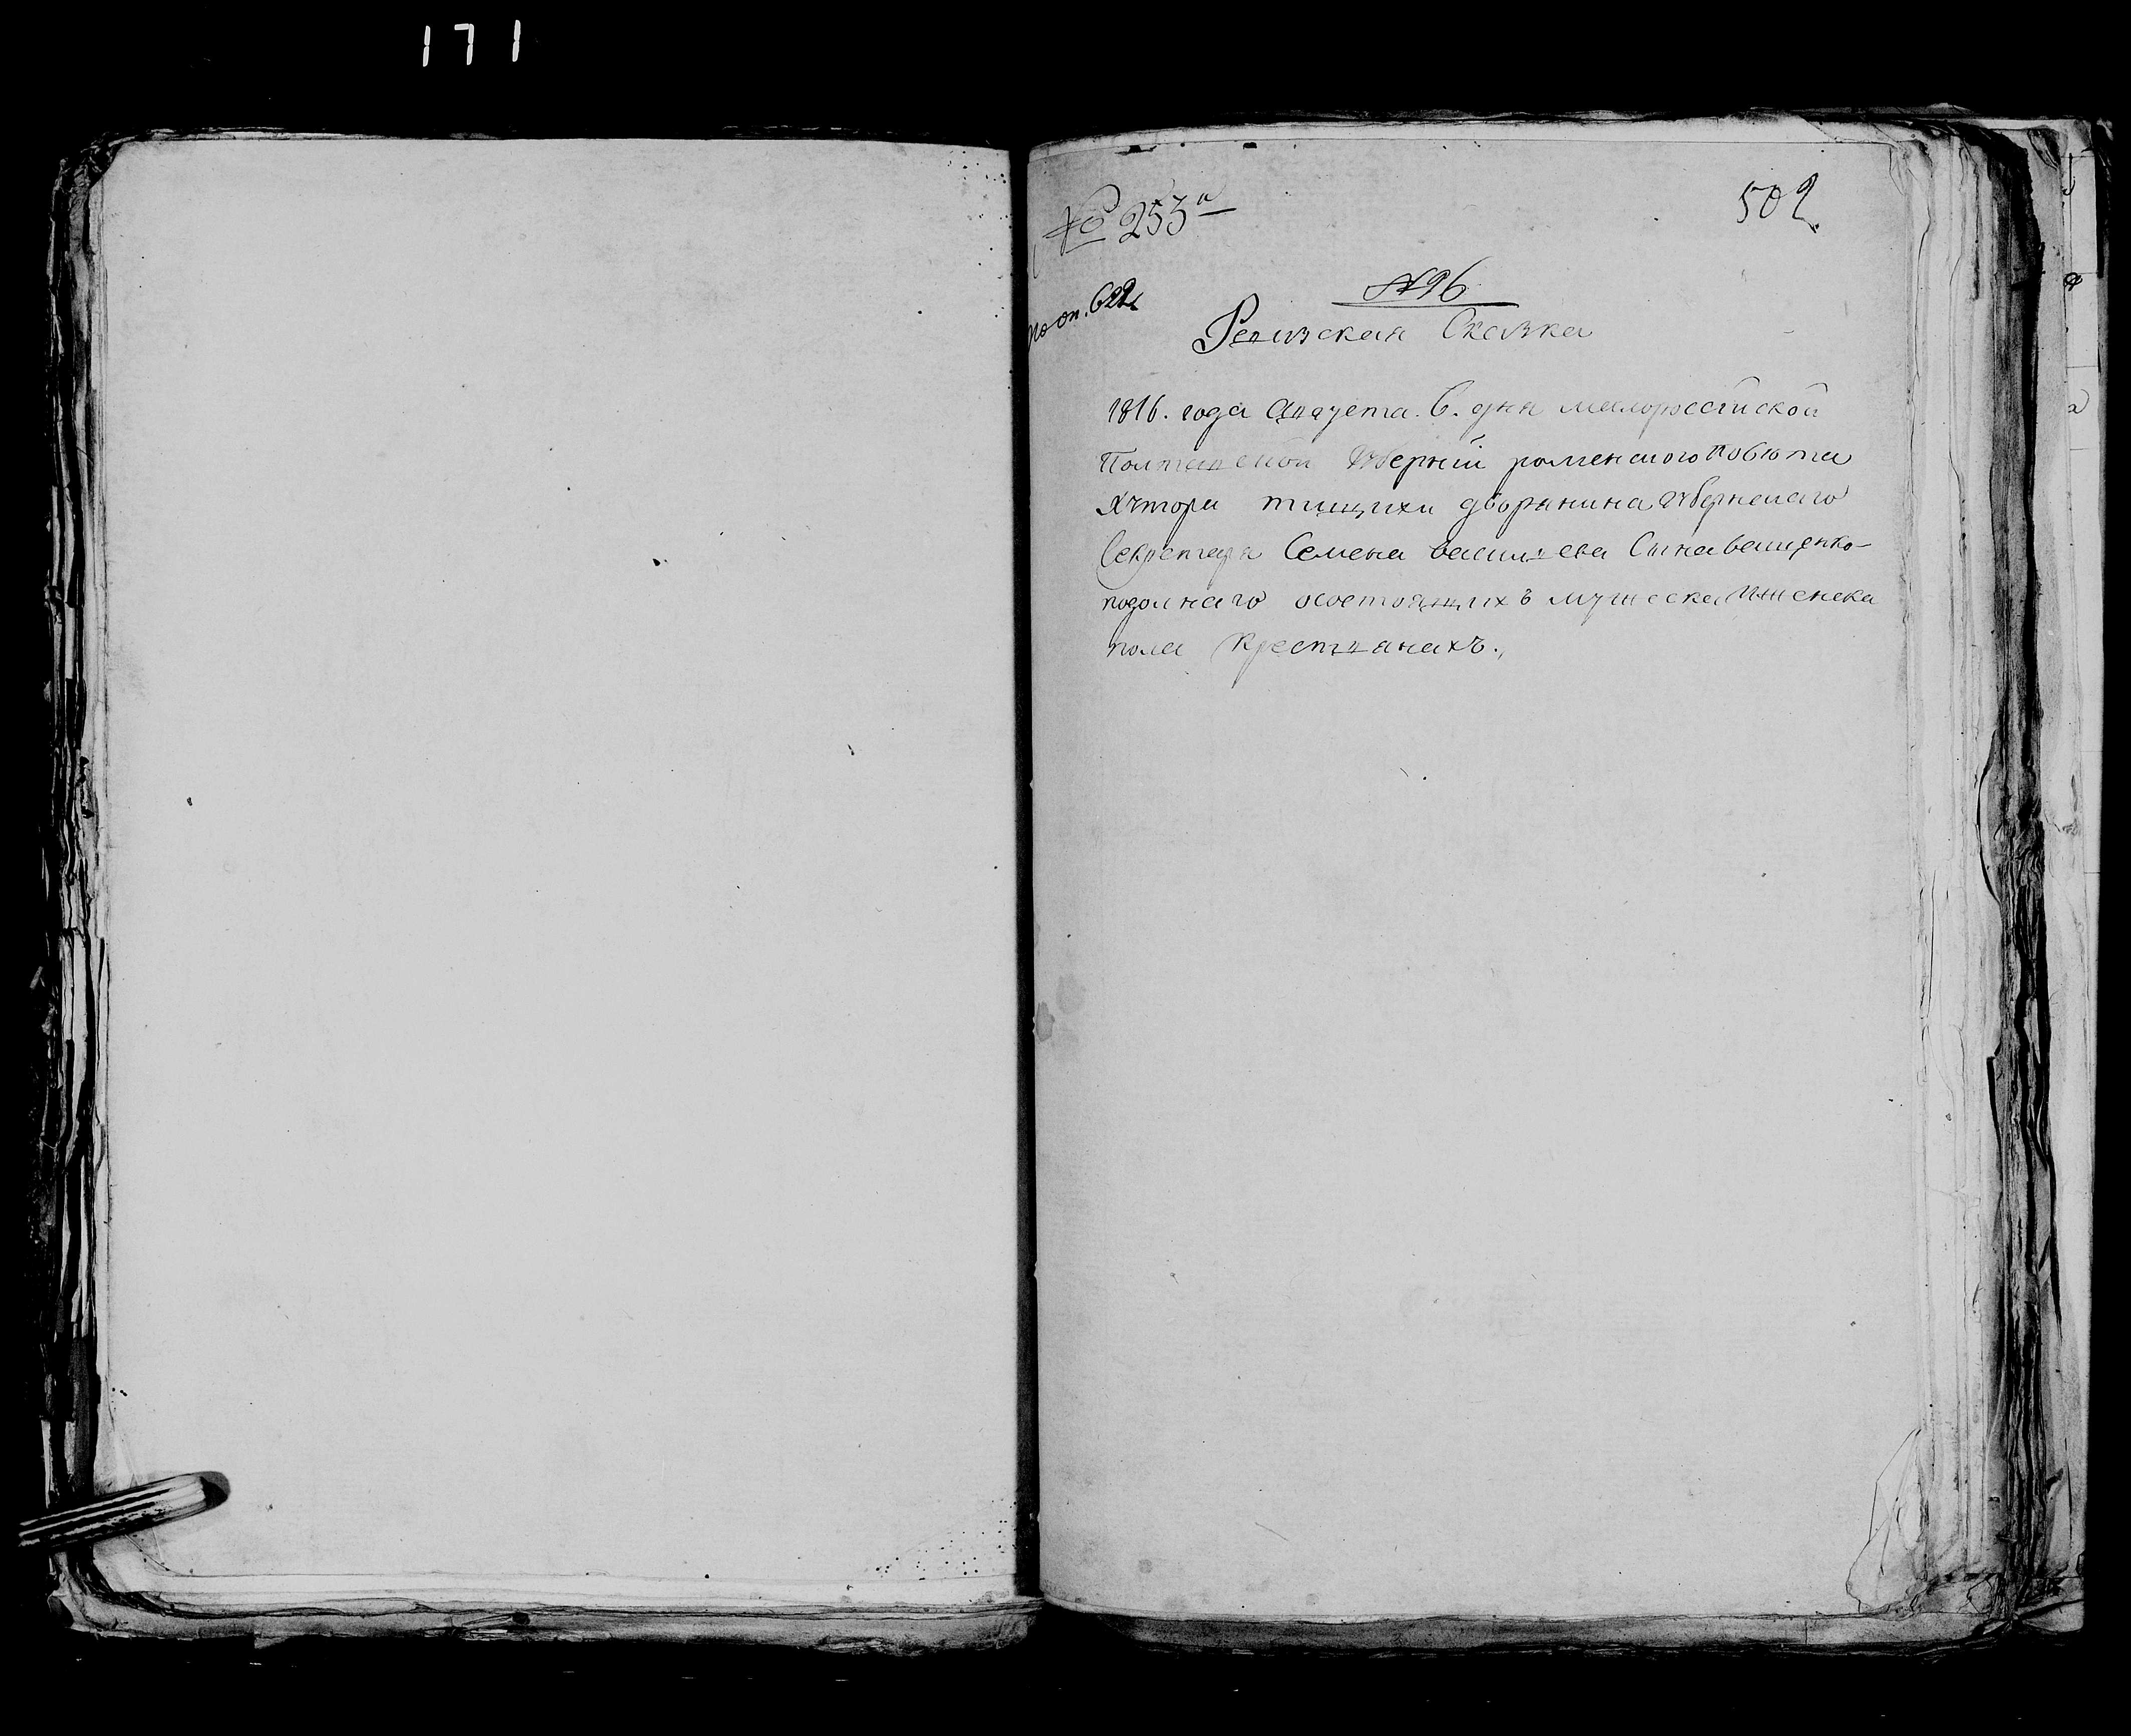 171
№ 253а
502
по оп. 622
№96
Ревизская Сказка
1816. года августа. 6. дня малоросейской
Полтавской губернии роменского повета
хутора тищихи дворянина губернскаго
Секретаря Семена васильева Сина ващенко-
подолнаго осостоящихъ мужеска иженска
пола крестьянахъ.,